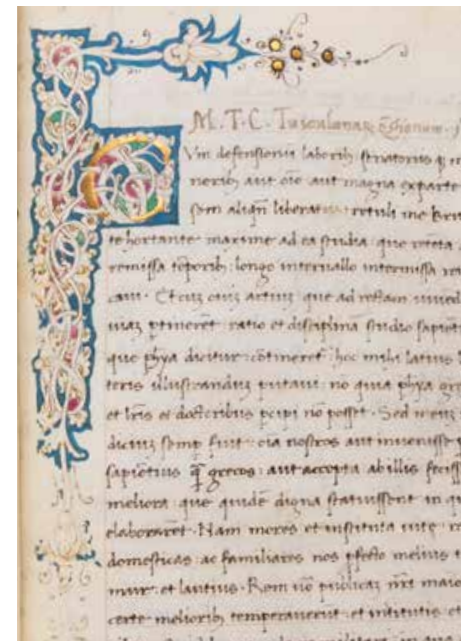 M. T. C. Tusculanaꝝ q̃stionum. p
Cum defensionis laborib; senatoriis q; m
neribus aut oĩo aut magna ex parte
sem aliqñ liberatus retuli me Bru
te hortante maxime ad ea studia que retẽta a
remissa tẽporib; longo intervallo intermissa re
cavi. Et cuꝫ oiuꝫ artium que ad rectam vivend
viaꝫ ptineret ratio et disciplina studio sapiẽt
que phỹa dicitur cõtineret hoc mihi latinis l
teris illustranduꝫ putavi: nõ quia phỹa gre
et lr̃is et doctoribus pcipi nõ posset. Sed meuꝫ
diciuꝫ semp fuit: oĩa nostros aut invenisse p
sapiẽtius q̃ grecos: aut accepta ab illis fecis
meliora: que quidẽ digna statuissent in qu
elaborarẽt. Nam mores et instituta vite: re
domesticas ac familiares nos pfecto melius t
mur et lautius. Rem vo publicaꝫ nr̃i maio
certe meliorib; temperaverũt et institutis et